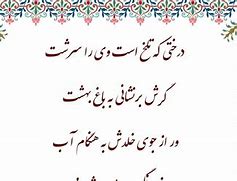 درختی که تلخ است وی را سرشت
گرش برنشانی به باغ بهشت
ور از جوی خلدش به هنگام آب